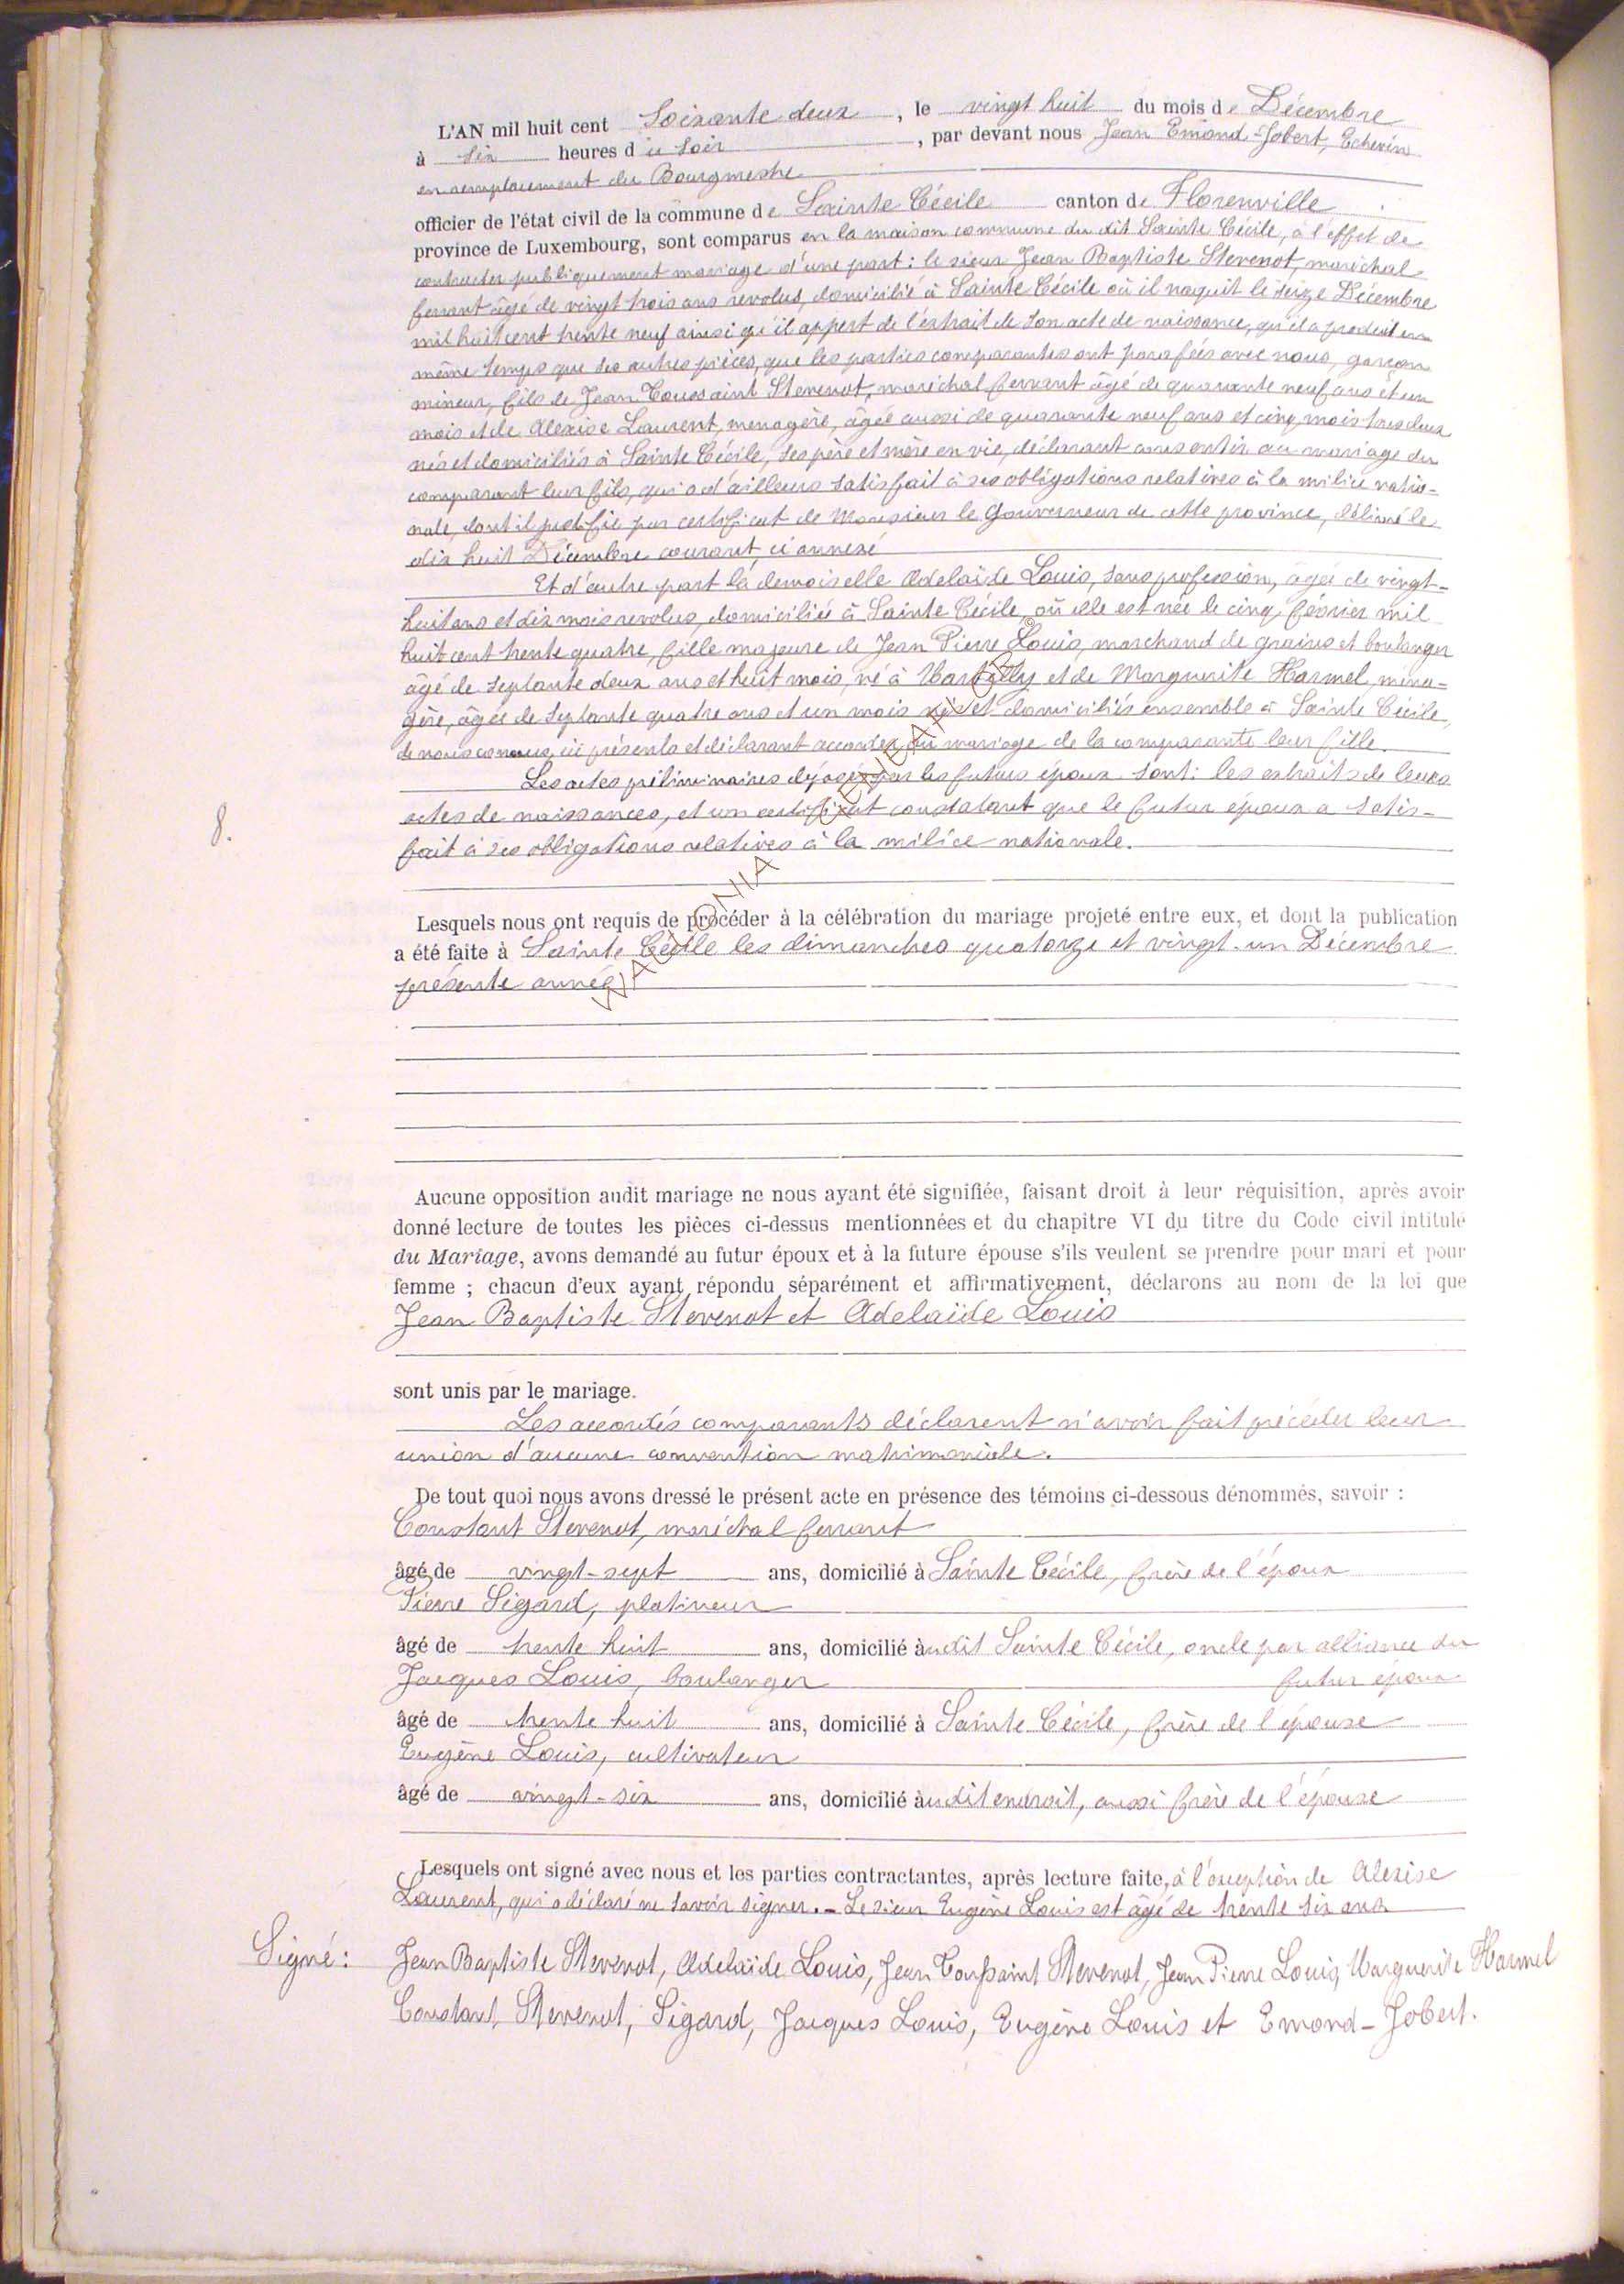 L'AN mil huit cent Soixante deux, le vingt huit du mois de Décembre
à six heures du soir, par devant nous Jean Emond-Jobert, Echevin
en remplacement du Bourgmestre
officier de l'état civil de la commune de Sainte Cécile canton de Florenville
province de Luxembourg, sont comparus en la maison commune du dit Sainte Cécile, à l'effet de
contracter publiquement mariage d'une part: le sieur Jean Baptiste Stevenot, maréchal
ferrant âgé de vingt trois ans revolus, domicilié à Sainte Cécile où il naquit le seize Décembre
mil huit cent trente neuf ainsi qu'il appert de l'extrait de son acte de naissance, qu'il a produit en
même temps que ses autres pièces, que les parties comparantes ont parafées avec nous, garçon
mineur, fils de Jean Toussaint Stevenot, maréchal ferrant âgé de quarante neuf ans et un
mois et de Alexise Laurent, menagère, âgée aussi de quarante neuf ans et cinq mois tous deux
nés et domiciliés à Sainte Cécile, ses père et mère en vie, déclarant consentir au mariage du
comparant leur fils, qui a d'ailleurs satisfait à ses obligations relatives à la milice natio-
nale, dont il justifie par certificat de Monsieur le Gouverneur de cette province, délivré le
dix huit Décembre courant, ci annexé
Et d'autre part la demoiselle Adelaïde Louis, sans profession, âgée de vingt-
huit ans et dix mois revolus, domiciliée à Sainte Cécile, où elle est née le cinq février mil
huit cent trente quatre, fille majeure de Jean Pierre Louis, marchand de grains et boulanger
âgé de septante deux ans et huit mois, né à Martilly et de Marguerite Harmel, ména-
gère, âgée de septante quatre ans et un mois et domiciliés ensemble à Sainte Cécile,
de nous connus, ici présents et déclarant accorder au mariage de la comparante leur fille.
Les actes préliminaires déposés par les futurs époux sont: les extraits de leurs
actes de naissances, et un certificat constatant que le futur époux a satis-
fait à ses obligations relatives à la milice nationale.
8.
Lesquels nous ont requis de procéder à la célébration du mariage projeté entre eux, et dont la publication
a été faite à Sainte Cécile les dimanches quatorze et vingt-un Décembre
présente année
Aucune opposition audit mariage ne nous ayant été signifiée, faisant droit à leur réquisition, après avoir
donné lecture de toutes les pièces ci-dessus mentionnées et du chapitre VI du titre du Code civil intitulé
du Mariage, avons demandé au futur époux et à la future épouse s'ils veulent se prendre pour mari et pour
femme ; chacun d'eux ayant répondu séparément et affirmativement, déclarons au nom de la loi que
Jean Baptiste Stevenot et Adelaïde Louis
sont unis par le mariage.
Les accordés comparants déclarent n'avoir fait précéder leur
union d'aucune convention matrimoniale.
De tout quoi nous avons dressé le présent acte en présence des témoins ci-dessous dénommés, savoir :
Constant Stevenot, maréchal ferrant
âgé de vingt-sept ans, domicilié à Sainte Cécile, frère de l'époux
Pierre Sigard, platineur
âgé de trente huit ans, domicilié àudit Sainte Cécile, oncle par alliance du
Jacques Louis, boulanger futur époux
âgé de trente huit ans, domicilié à Sainte Cécile, frère de l'épouse
Eugène Louis, cultivateur
âgé de vingt-six ans, domicilié àudit endroit, aussi frère de l'épouse
Lesquels ont signé avec nous et les parties contractantes, après lecture faite, à l'exception de Alexise
Laurent, qui a déclaré ne savoir signer. - Le sieur Eugène Louis est âgé de trente six ans
Signé: Jean Baptiste Stevenot, Adelaïde Louis, Jean Toussaint Stevenot, Jean Pierre Louis, Marguerite Harmel
Constant Stevenot, Sigard, Jacques Louis, Eugène Louis et Emond-Jobert.